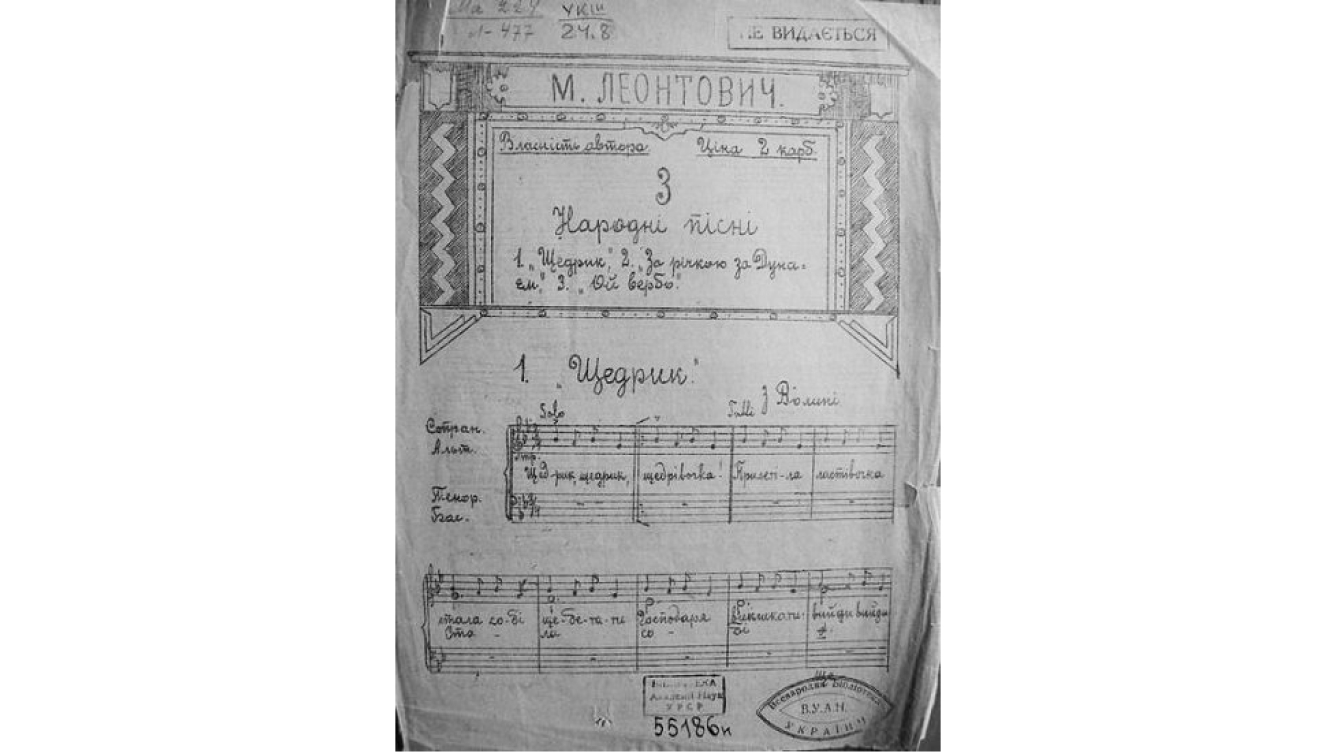 На 224 УКІІІ
Л-477 24.8
НЕ ВИДАЄТЬСЯ
М. ЛЕОНТОВИЧ.
Власність автора. Ціна 2 карб.
3
Народні пісні
1. „Щедрик", 2. „За річкою за Дуна-
єм", 3. „Ой вербо".
1. „Щедрик."
Solo Tutti З Волині
Сопран.
Альт.
Щед-рик, щедрик, щедрівочка! Прилеті-ла ластівочка
Тенор.
Бас.
стала со-бі ще-бе-та-ти Господаря викликати- вийди вийди
Ста - ла со - бі
БІБЛІОТЕКА
Академії Наук
УРСР
55186н
Всенародня Бібліотека
В.У.А.Н.
УКРАЇНИ